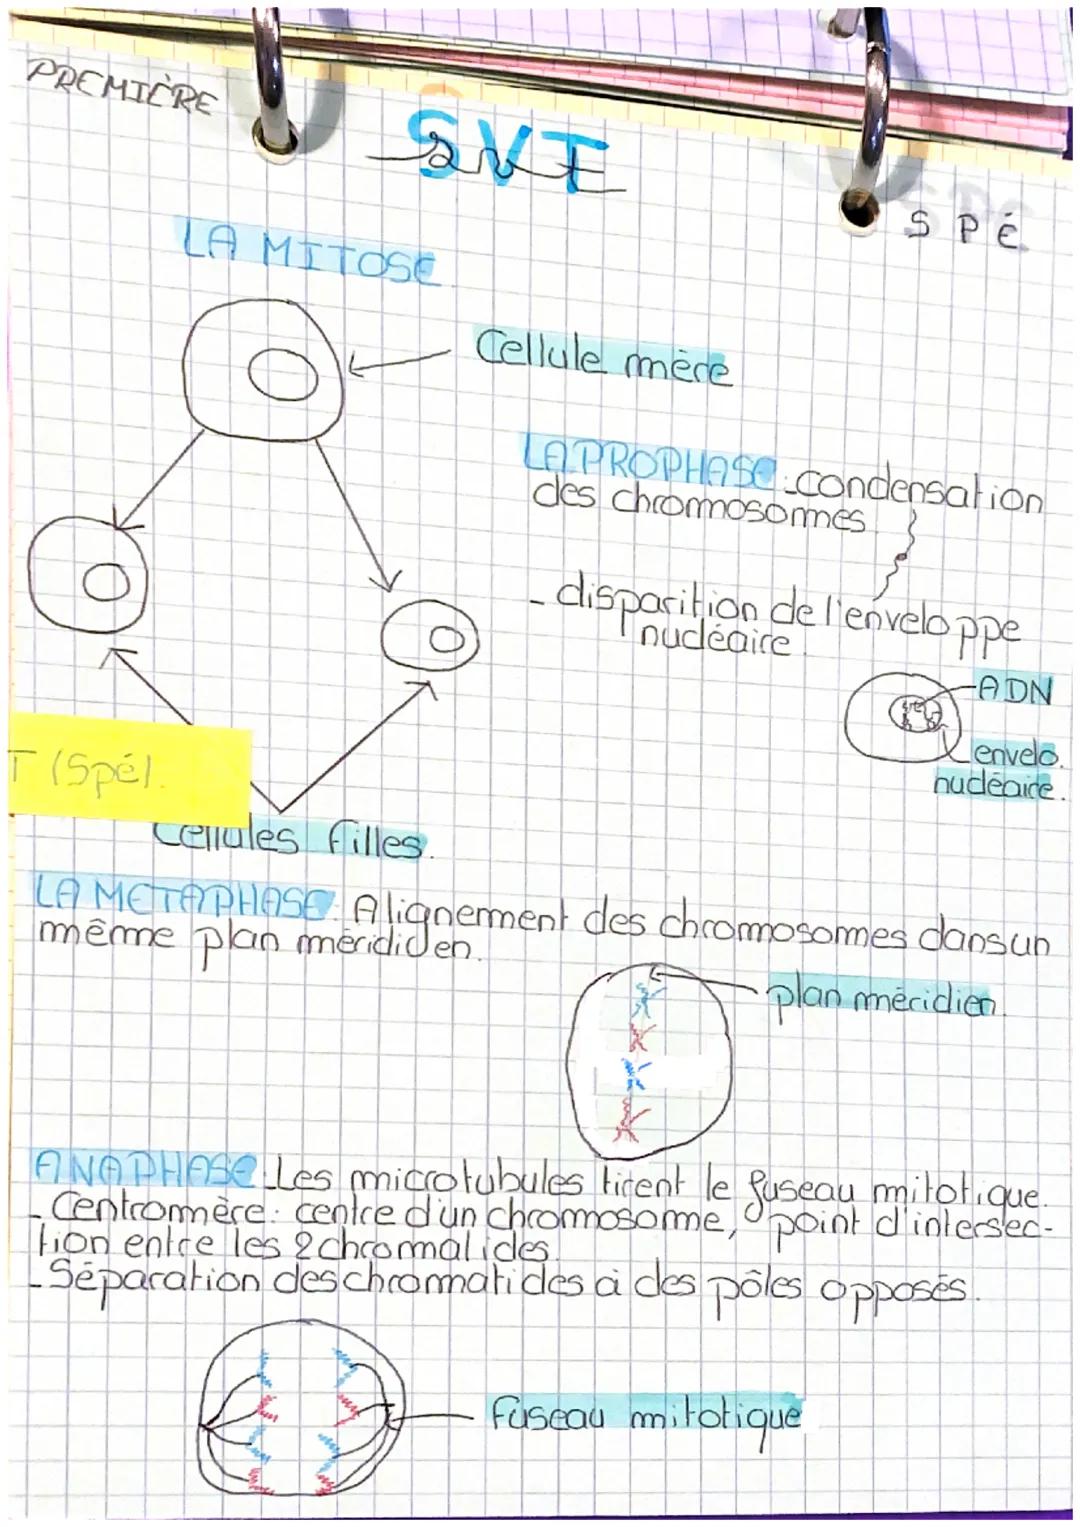 PREMIÈRE
SVT
SPÉ
LA MITOSE
Cellule mère
LA PROPHASE: condensation
des chromosomes
- disparition de l'enveloppe
nucléaire.
ADN
envelo.
nucléaire.
T (Spé).
Cellules filles.
LA METAPHASE: Alignement des chromosomes dans un
même plan méridien.
plan méridien
ANAPHASE: Les microtubules tirent le fuseau mitotique.
- Centromère: centre d'un chromosome, point d'intersec-
tion entre les 2 chromatides
- Séparation des chromatides à des pôles opposés.
fuseau mitotique